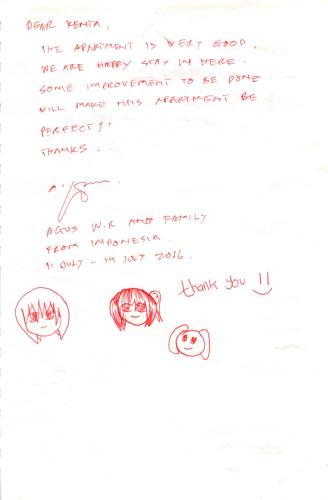 DEAR KENTA,
THE APARTMENT IS VERY GOOD.
WE ARE HAPPY STAY IN HERE.
SOME IMPROVEMENT TO BE DONE
WILL MAKE THIS APARTMENT BE
PERFECT!!
THANKS.
AGUS W.R AND FAMILY
FROM INDONESIA.
11 JULY - 19 JULY 2016.
thank you !! :)